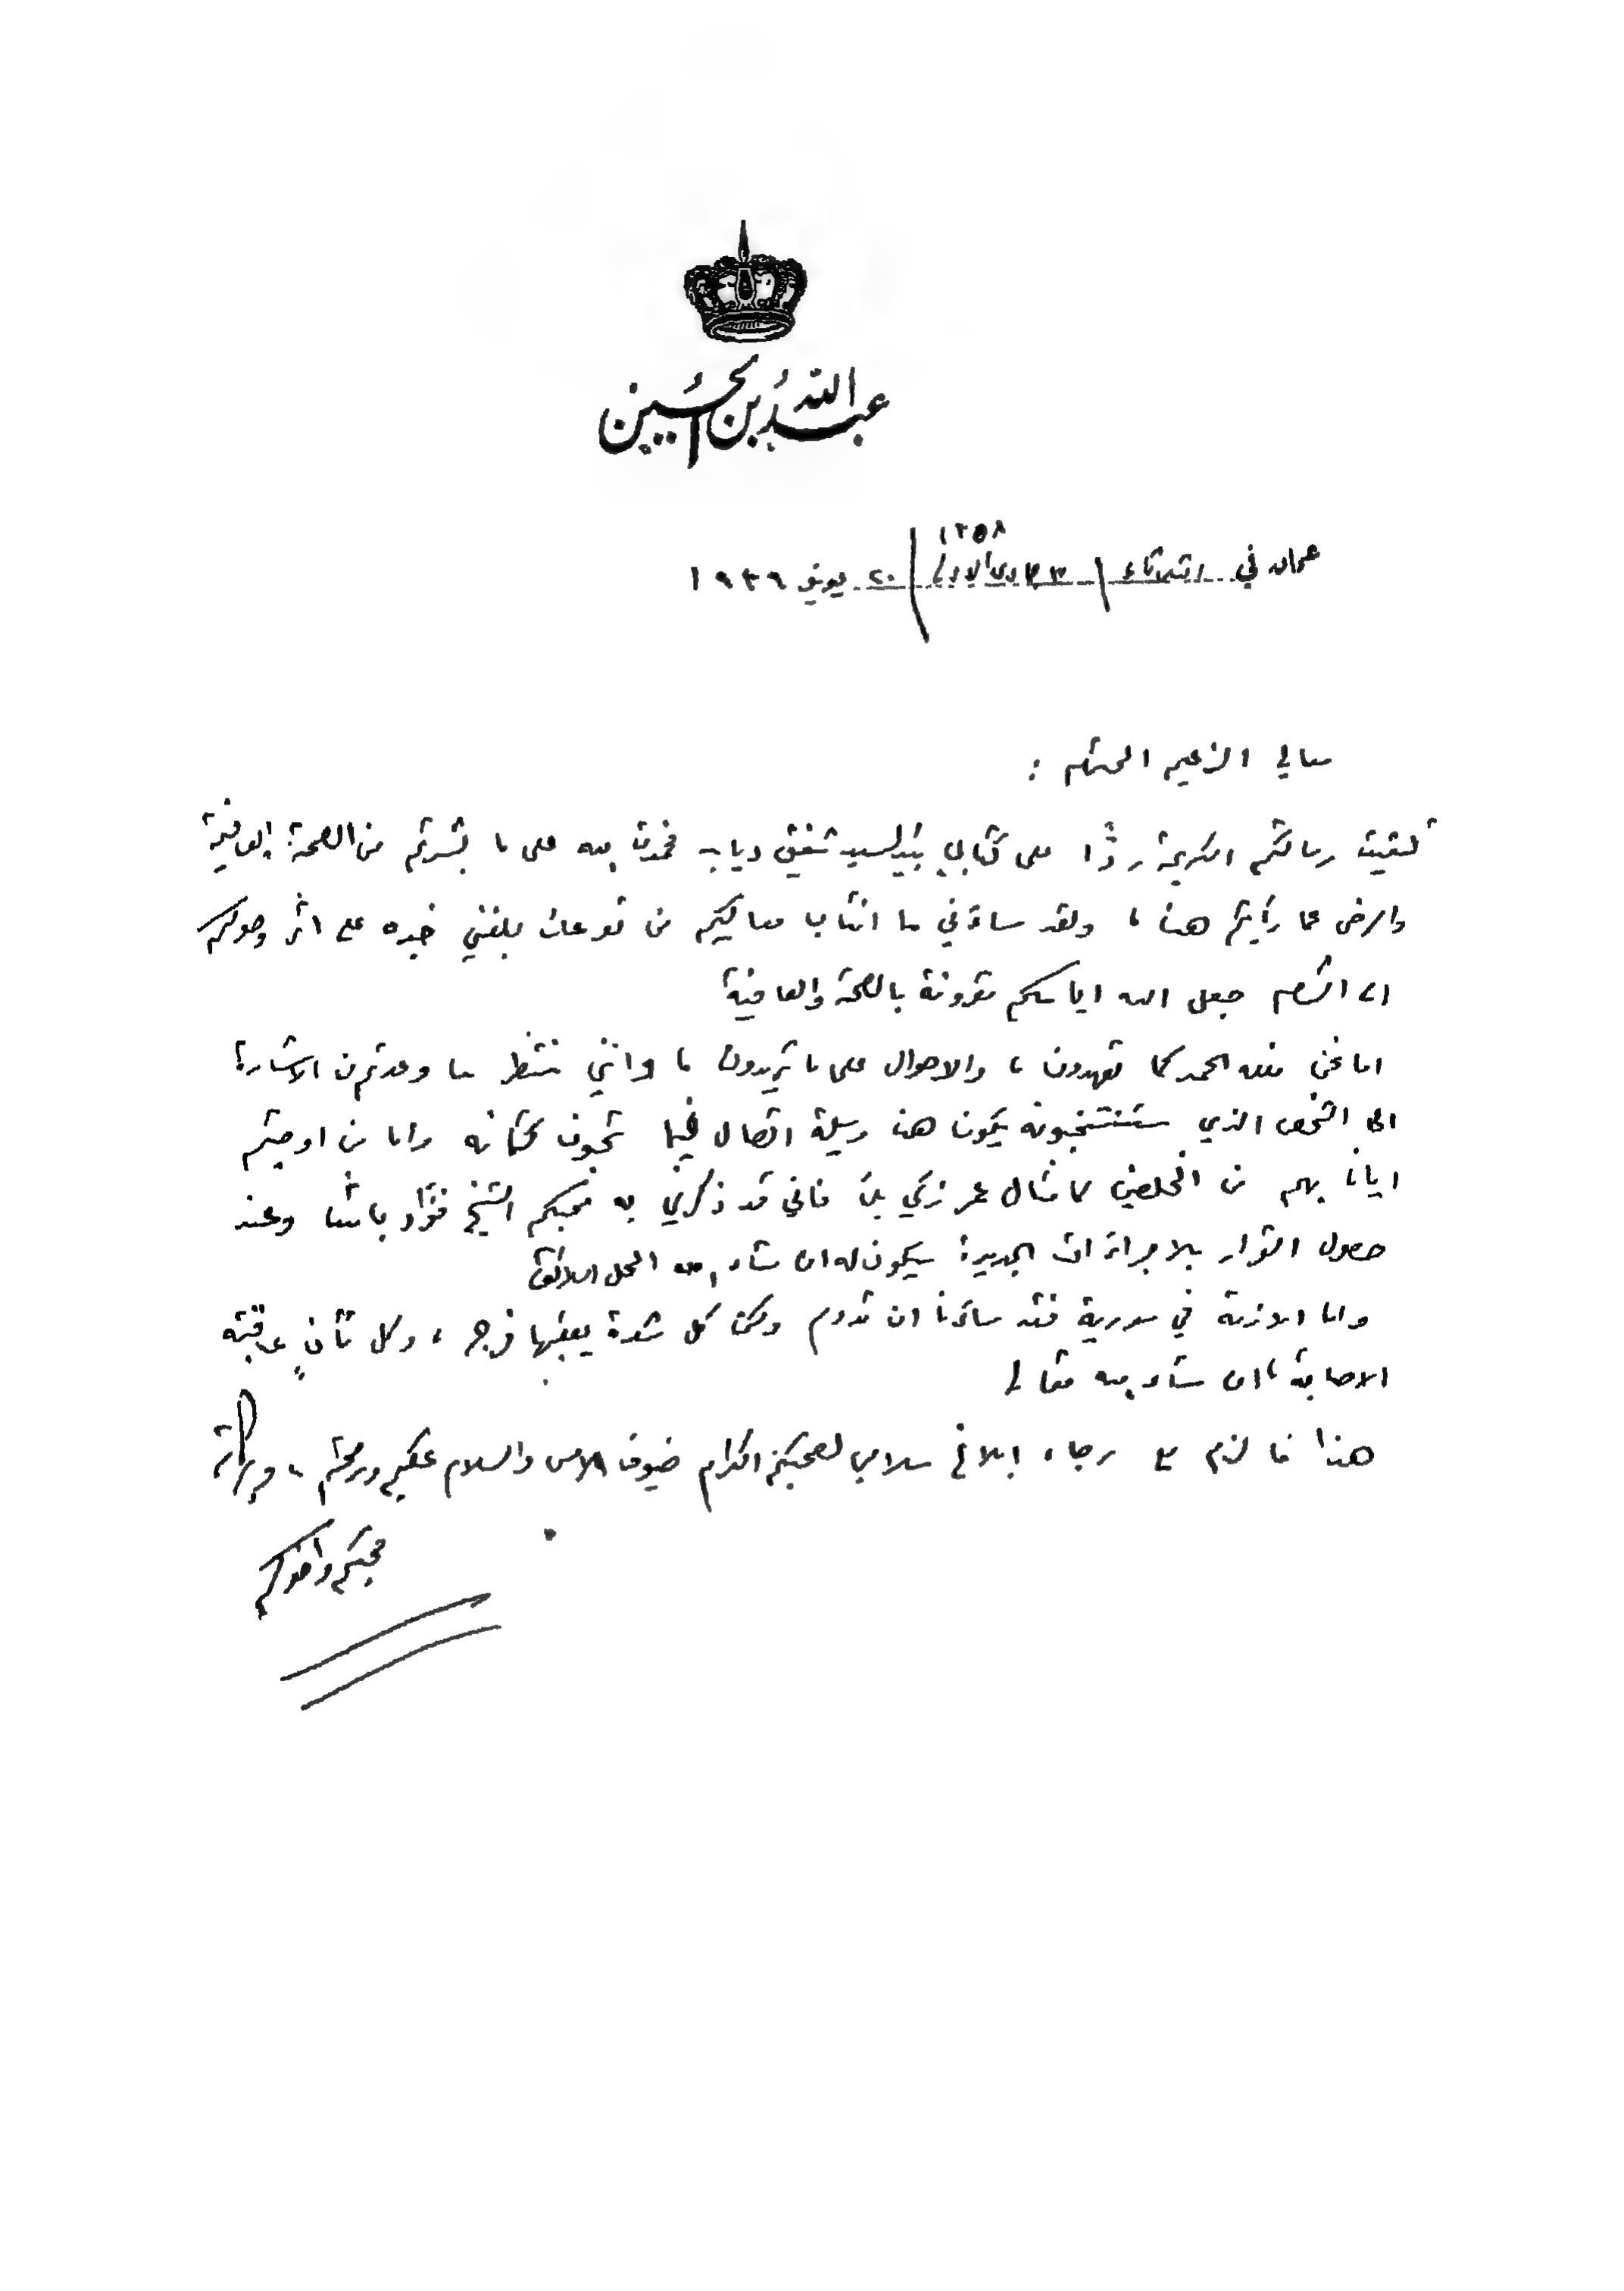 عبد الله بن الحسين
١٣٥٨
عمان في الثلاثاء / ٣ جمادى الاولى / ٢٠ يونيو ١٩٣٩
معالي الزعيم المحترم :
تلقيت رسالتكم الكريمة رداً على كتابي بيد السيد شفيق دياب فحمدت الله على ما بشرتم من الصحة والعافية
والرضى عما رأيتم هنا ، ولقد ساءني ما انتاب معاليكم من توعك بلغني خبره على اثر وصولكم
الى الشام جعل الله ايامكم مقرونة بالصحة والعافية
اما نحن فلله الحمد كما تعهدون ، والاحوال على ما تريدون ، وانني منتظر ما وعدتم من الاشارة
الى الشخص الذي ستنتخبونه يكون هنا وسيلة اتصال فيما تحبون كتمانه واما من اوصيتم
ايانا بهم من المخلصين كامثال عمر زكي بك فاني قد ذكرني به محبكم الشيخ فؤاد باشا وعند
حصول القرار بالاجراءات الجديدة سيكون له ان شاء الله المحل اللائق
واما الازمة في سورية فقد ساءنا ان تدوم ولكن كل شدة يعقبها فرج ، وكل تأنٍ عاقبته
الاصابة ، ان شاء الله تعالى
هذا ما لزم مع رجاء ابلاغ سلامي لصحبكم الكرام ضيوف الامس والسلام عليكم ورحمته ، وبركاته
محبكم واخوكم